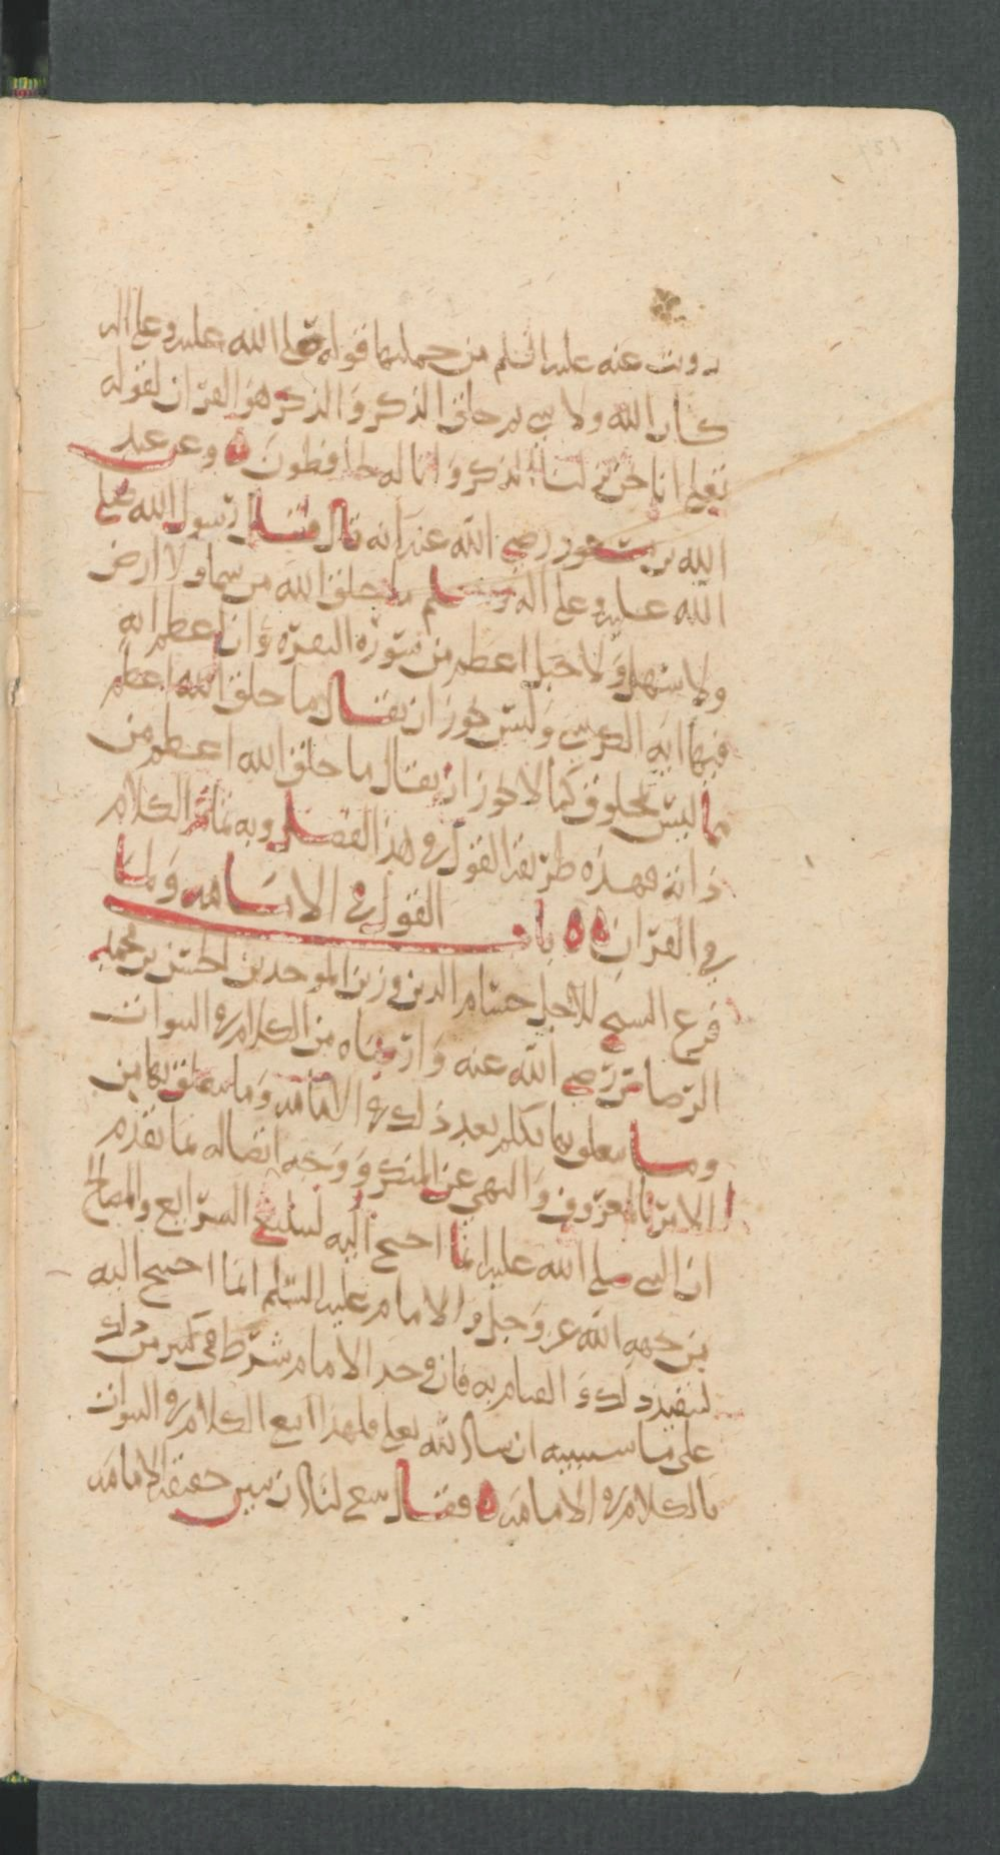 رويت عنه عليه السلم من جملتها قوله صلى الله عليه وعلى اله
كان الله ولا شي ثم خلق الذكر والذكر هو القران لقوله
تعلى انا نحن نزلنا الذكر وانا له لحافظون وعن عبد
الله بن مسعود رضي الله عنه انه قال قال رسول الله صلى
الله عليه وعلى اله وسلم ما خلق الله من سما ولا ارض
ولا سهل ولا جبل اعظم من سورة البقرة وان اعظم ايه
فيها ايه الكرسي وليس يجوز ان يقال ما خلق الله اعظم
مما ليس بمخلوق كما لا يجوز ان يقال ما خلق الله اعظم من
ذاته فهذه طريقة القول في هذا الفصل وبه تم الكلام
في القران باب القول في الامامه ولما
فرغ الشيخ الاجل حسام الدين وزين الموحدين الحسن بن محمد
الرصاص رضي الله عنه وارضاه من الكلام في النبوات
وما يتعلق بها تكلم بعد ذلك في الامامه وما يتعلق بها من
الامر بالمعروف والنهي عن المنكر ووجه اتصاله بما تقدم
ان النبي صلى الله عليه انما احتيج اليه لتبليغ الشرائع والمصالح
من جهه الله عز وجل والامام عليه السلم انما احتيج اليه
لتنفيذ ذلك و القيام به فان وجد الامام شرط في كثير من ذلك
على ما سنبينه ان شا الله تعلى فلهذا اتبع الكلام في النبوات
بالكلام في الامامه فقال ينبغي لنا ان نبين حقيقة الامامه